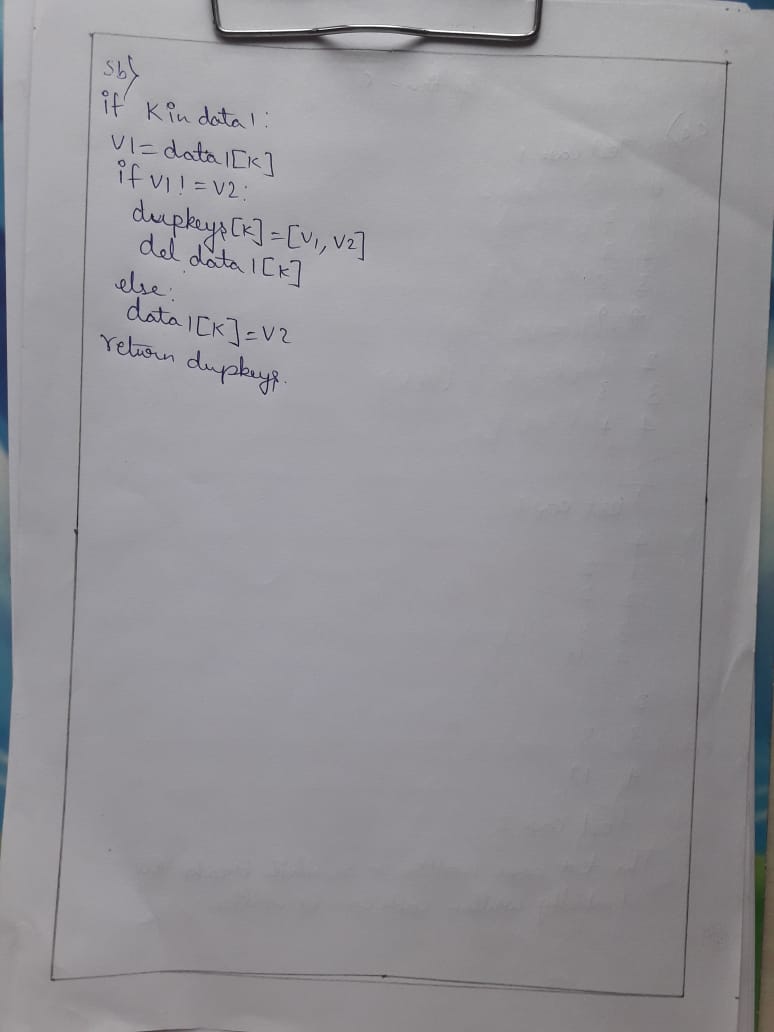 5b)
if K in data1:
V1 = data1[K]
if V1 != V2:
dupkeys[K] = [V1, V2]
del data1[K]
else:
data1[K] = V2
return dupkeys.